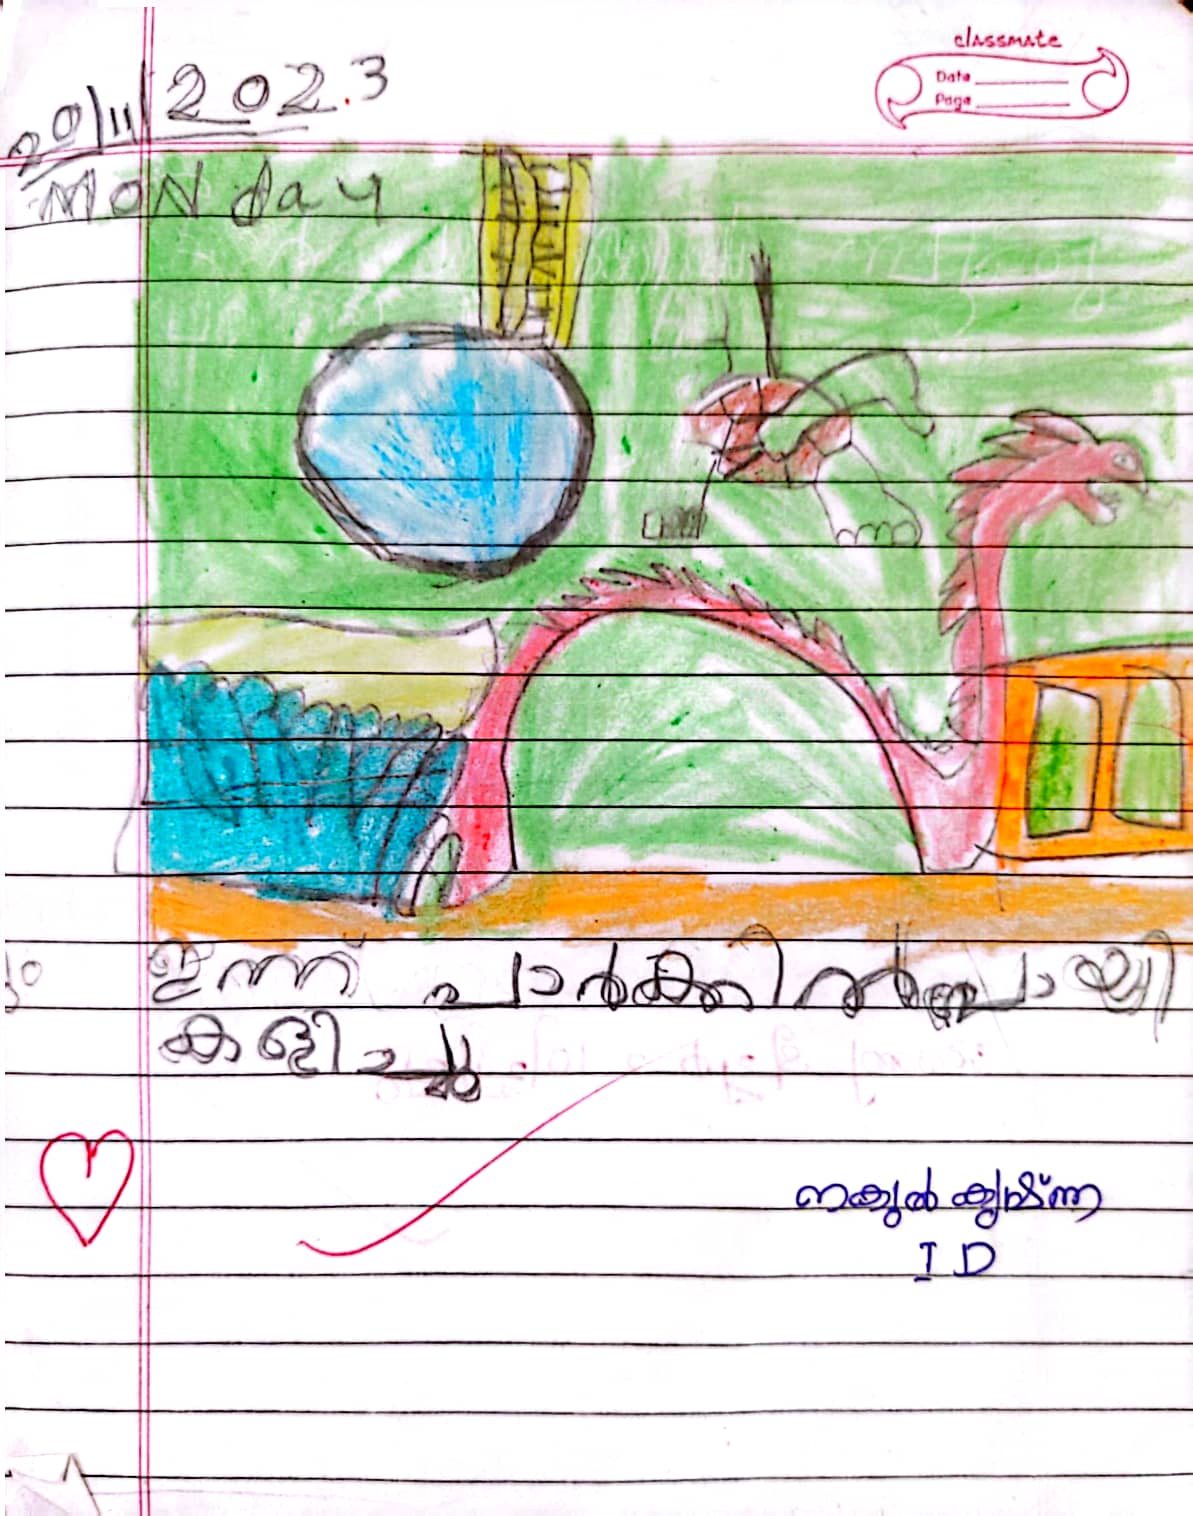 classmate
Date
Page
20/11/2023
MONday
ഇന്ന് പാർക്കിൽ പോയി
കളിച്ചു
നകുൽ കൃഷ്ണ
I D